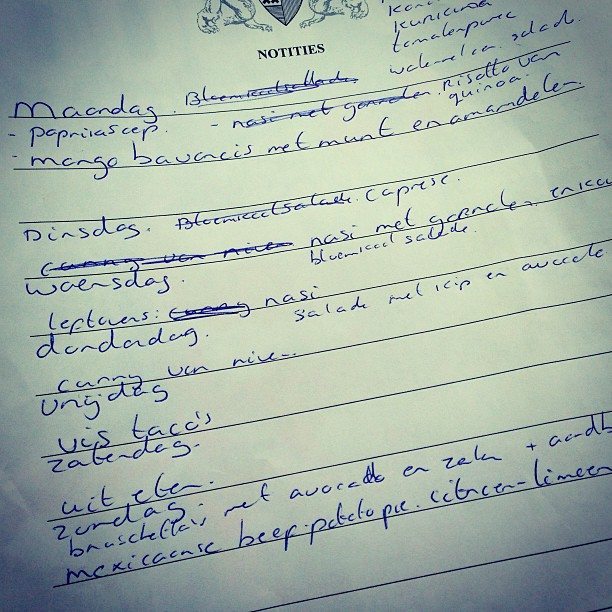 NOTITIES
tomatenpuree
watermeloen salade
Maandag. Bloemkoolsalade
- paprikasoep. - nasi met garnalen Risotto van quinoa.
- mango bavarois met munt en amandelen
Dinsdag. Bloemkoolsalade Caprese.
curry van nasi met garnalen en
bloemkool salade.
Woensdag.
curry nasi
salade met kip en avocado
donderdag.
curry van
Vrijdag
vis taco's
zaterdag.
uit eten.
zondag
bruschetta's met avocado en zalm +
mexicaanse beef potato pie. citroen-limoen